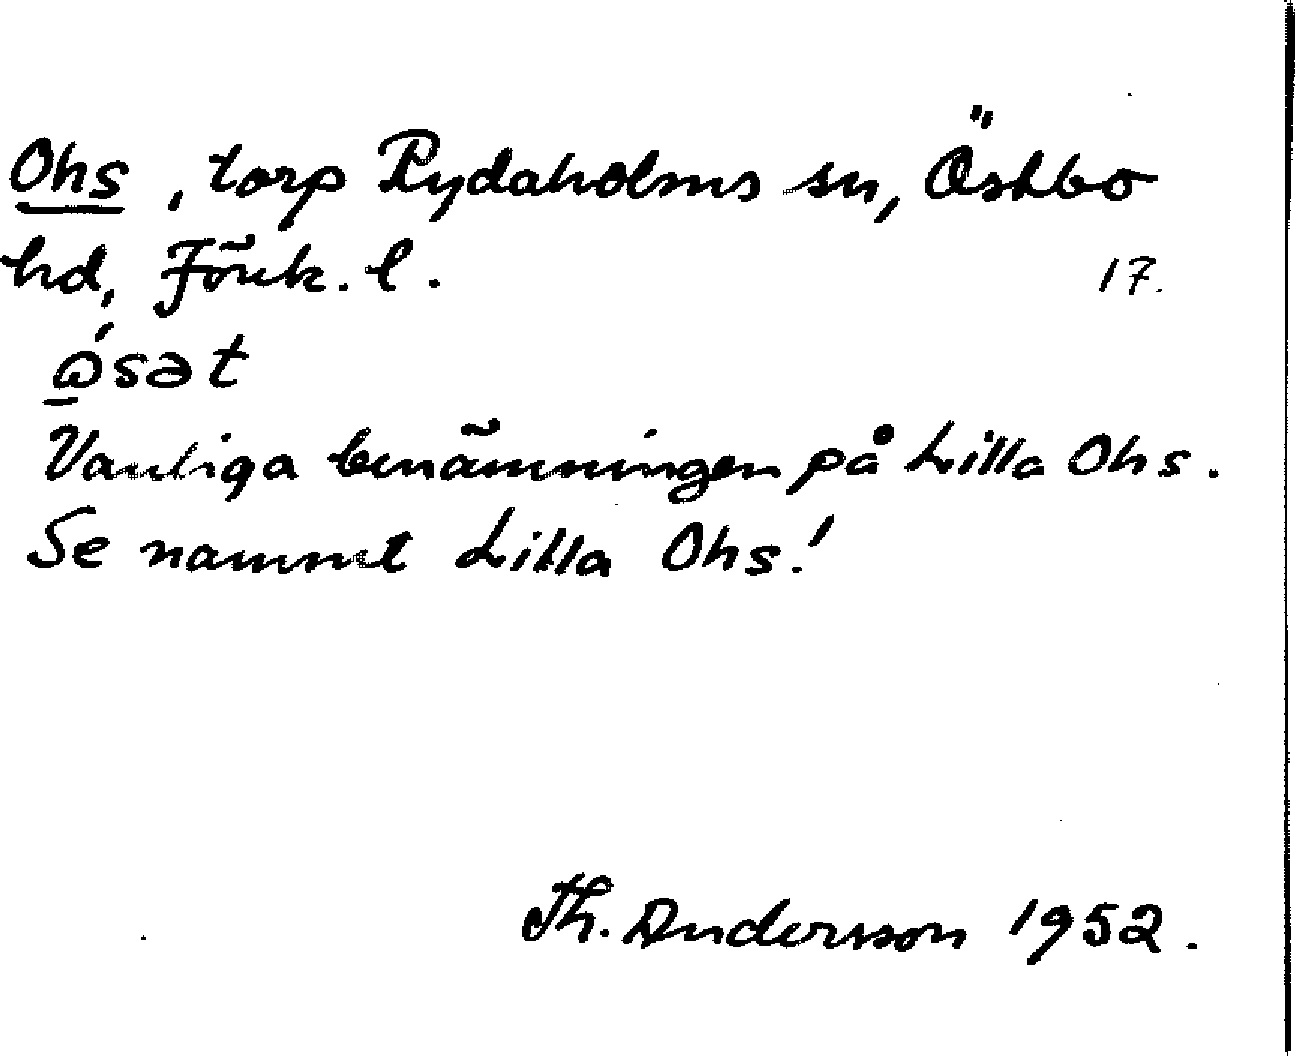 Ohs, torp Rydaholms sn, Östbo
hd, Jönk. l. 17.
ósət
Vanliga benämningen på Lilla Ohs.
Se namnet Lilla Ohs!
Th. Andersson 1952.